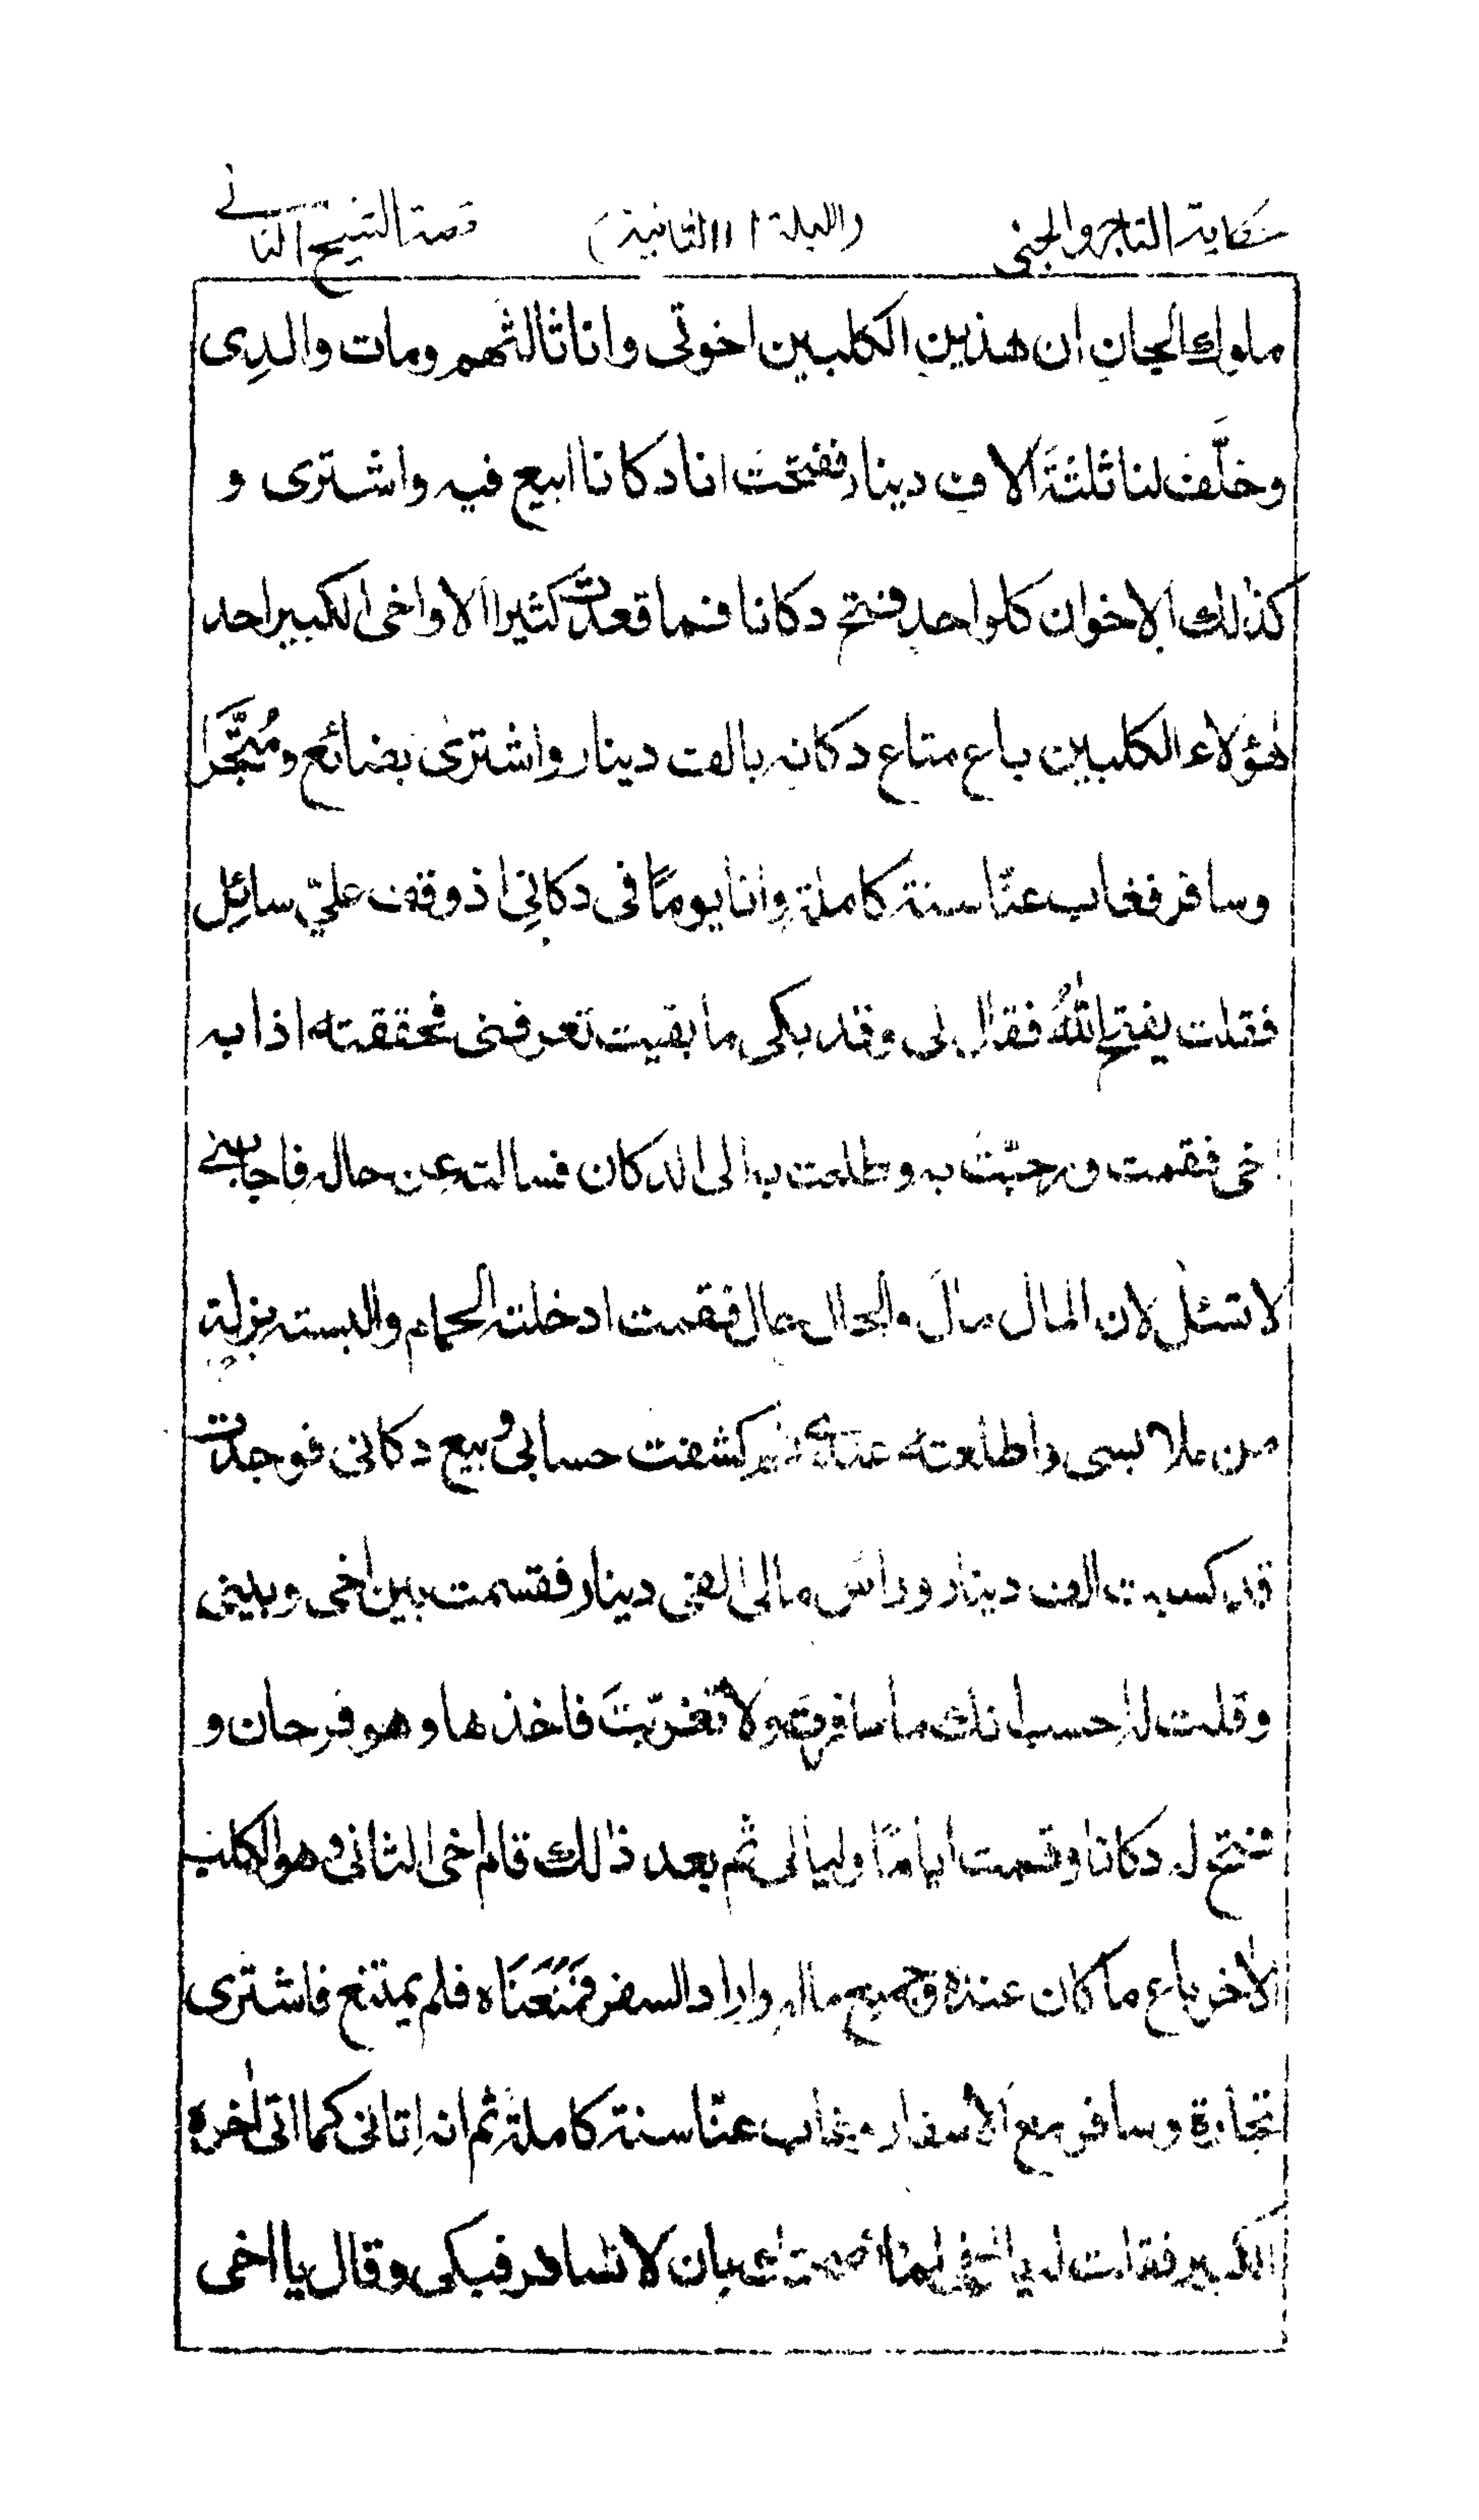 حكاية التاجر والجني (الليلة الثانية) قصة الشيخ الثاني
ملوك الجان ان هذين الكلبين اخوتى وانا ثالثهم ومات والدِى
وخلَّف لنا ثلثةَ الاف دينار ففتحت انا دكانا ابيع فيه واشترى و
كذلك الاخوان كلواحد فتح دكانا فما قعدت كثيرا الا واخى الكبير احد
هؤلاء الكلبين باع متاع دكانه بالف دينار واشترى بضائع ومُتَّجَرا
وسافر فغاب عنّا سنة كاملة وانا يومًا فى دكانِى اذ وقف علىّ سائِل
فقلت يفتح اللهُ فقال لى وقد بكى ما بقيت تعرفنى فحققته اذا به
اخى فقمت ورحبّتُ به وطلعت به الى الدكان فسالته عن حاله فاجابنى
لا تسئل لان المال مالَ والحال حال فقمت ادخلته الحمام والبسته بزلة
من ملابسى واطلعته عندى ثم كشفت حسابى وبيع دكانى فوجدت
قد كسبت الف دينار وراس مالى الفى دينار فقسمت بين اخى وبينى
وقلت له احسب انك ما سافرت ولا تغرّبتَ فاخذها وهو فرحان و
فتح له دكانا وقمت ايامًا وليالى ثم بعد ذالك قام اخى الثانى وهو الكلب
الاخر باع ما كان عنده وجميع ماله واراد السفر فمَنَعَنَاه فلم يمتنع فاشترى
تجارة وسافر مع الاسفار وغاب عنّا سنة كاملة ثم انه اتانى كما اتى اخوه
الكبير فقلت له يا اخى اما نصحتك بان لا تسافر فبكى وقال يا اخى